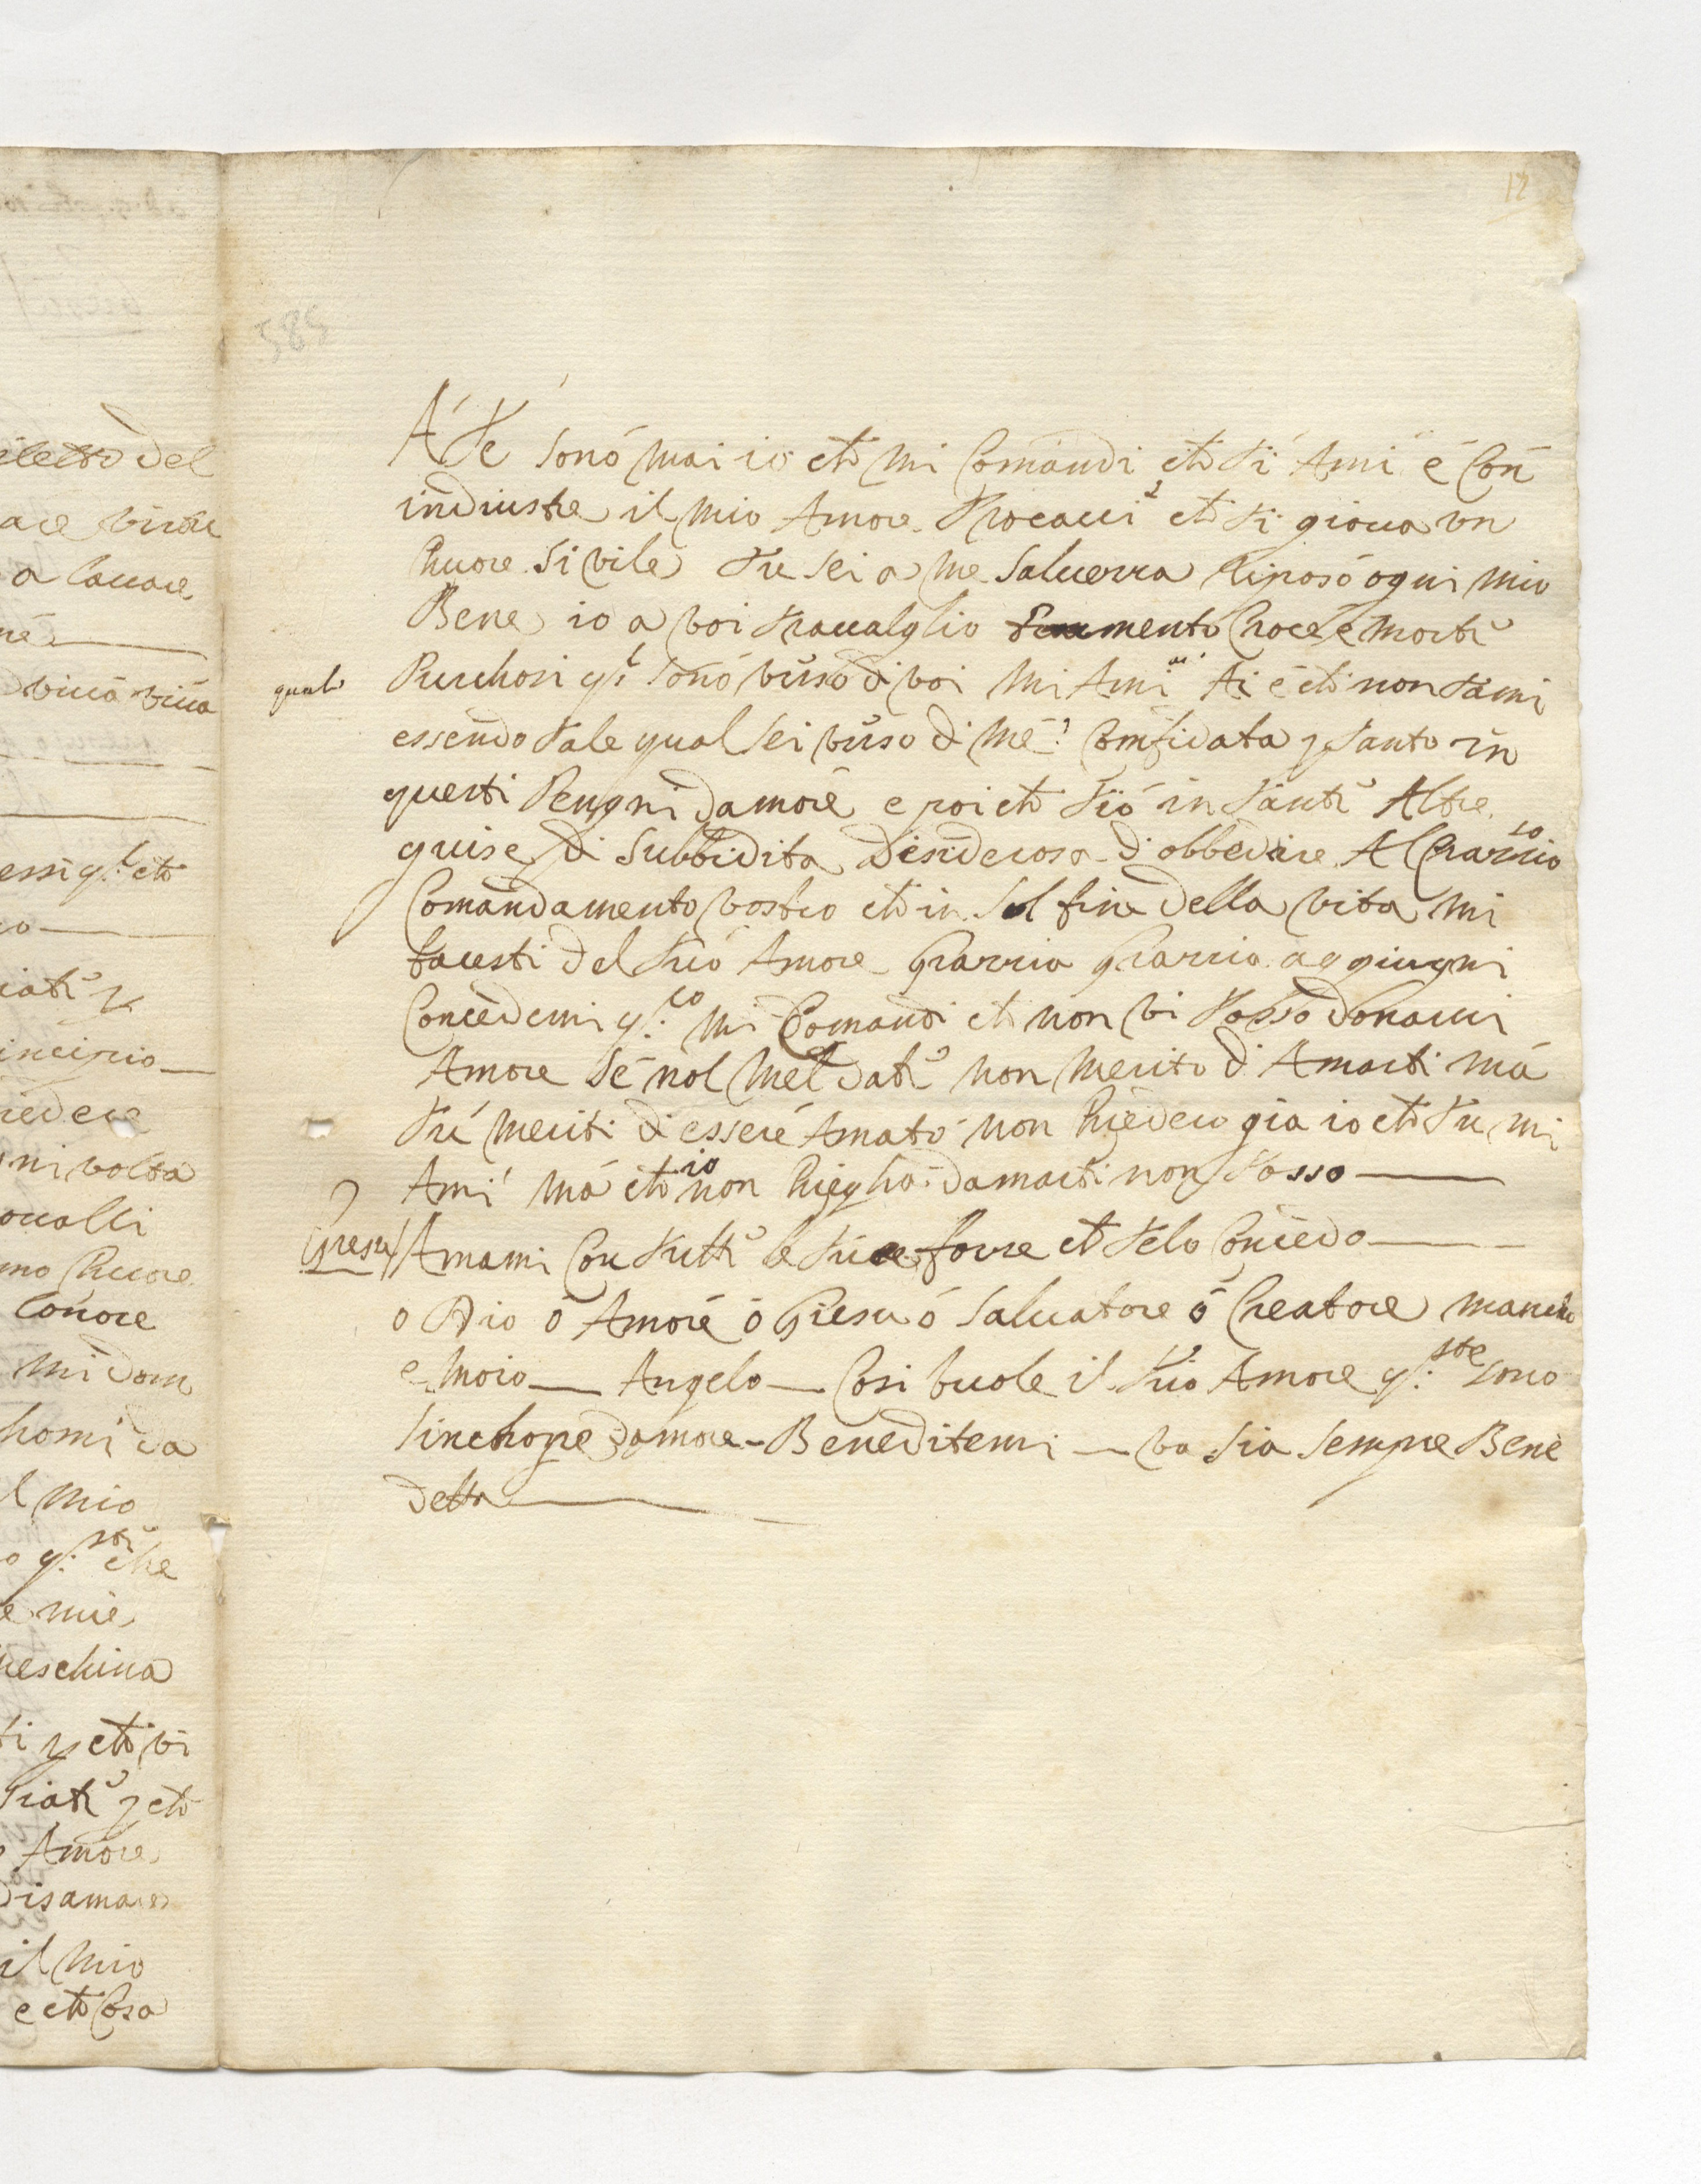 12
585
A Te sono mai io che mi Comandi che ti Ami e Con
indiustre il mio Amore Procacci che ti gioua un
Chuore si vile Tu sei a me Saluezza Riposo ogni mio
Bene io a voi trauaglio tormento Croce e morte
quale
Purchosi q.l sono verso di voi mi Ami Ai e che non tami
essendo tale qual sei verso di me? Comfidata p tanto in
questi Pengni damore e poi che Tio in tante Altre
guise di subbidita Desiderosa d'obbedire Al Grazio so
Comandamento vostro che in sul fine della vita mi
facesti del Tuo Amore grazzia grazzia aggiungni
Concedemi q.co mi Comandi che non vi posso donarvi
Amore se nol mel date non merito d'Amarti ma
Tu meriti di essere Amato non Chiedero gia io che Tu mi
Ami ma che io non Chiegha damarti non posso
Giesu
Amami Con tutte le tue forze che telo Concedo
o Dio o Amore o Giesu o Saluatore o Creatore mancho
e moro — Angelo — Cosi vuole il Tuo Amore q.ste sono
sinchope damore - Beneditemi — va sia sempre Bene
detta
iletto del
a lauare
viua viua
essi q.l che
incipio
iedere
ni volta
oualli
mo Chuore
lonore
mi dom
homi da
l mio
o q.sti che
e mie
meschina
ti p che vi
Amore
disamare
il mio
e che Cosa